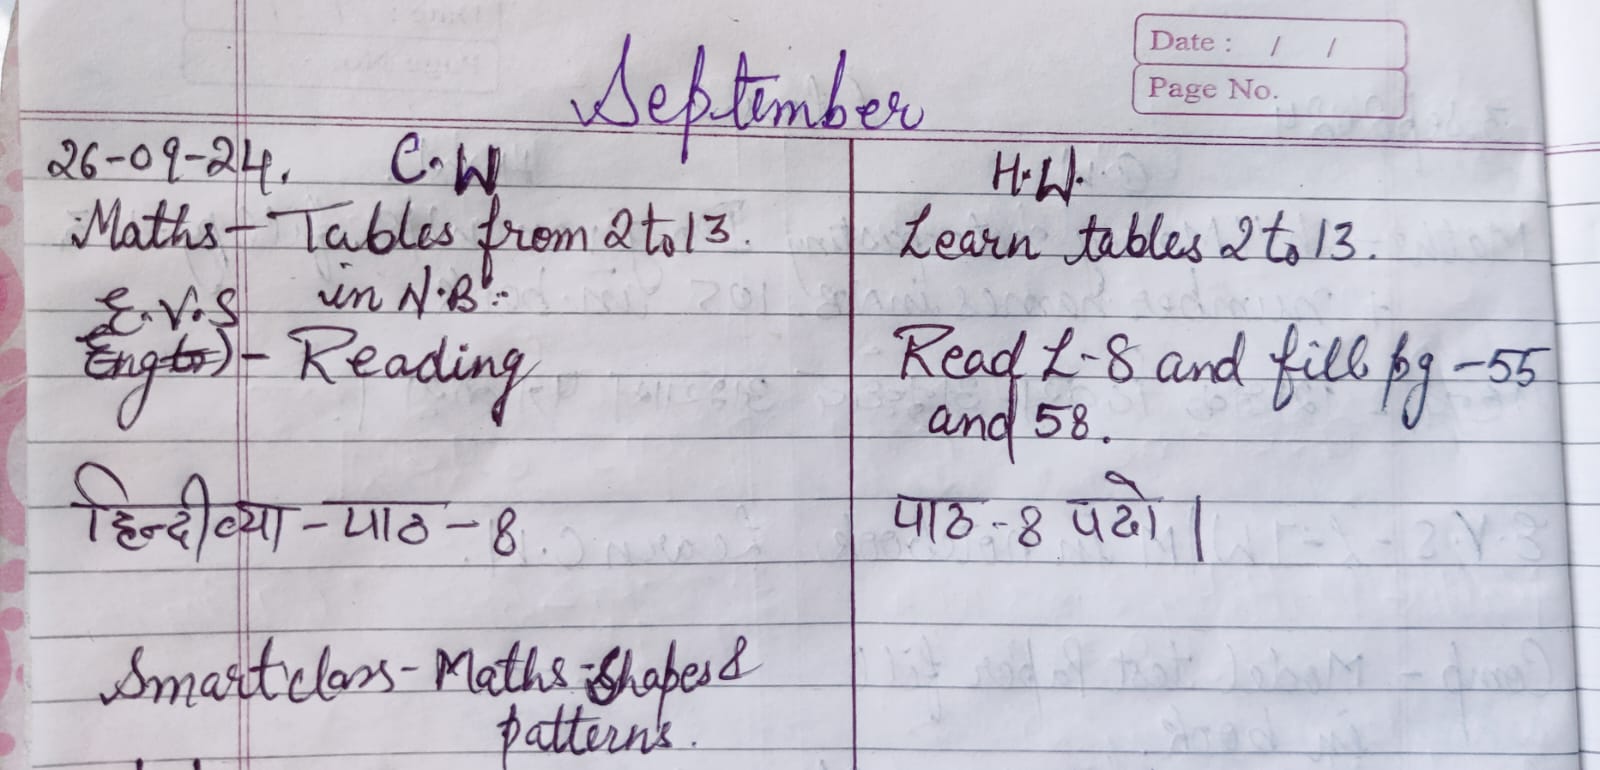 Date : / /
Page No.
September
26-09-24. C.W H.W.
Maths - Tables from 2 to 13. Learn tables 2 to 13.
in N.B:-
E.V.S
Eng - Reading Read L-8 and fill pg -55
and 58.
हिन्दी व्या - पाठ - 8 पाठ - 8 पढो |
Smart class - Maths - Shapes &
patterns.